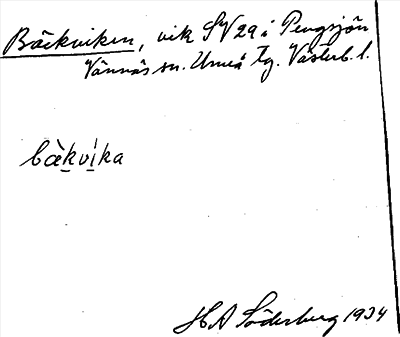 Bäckviken, vik SV29 i Pengsjön
Vännäs sn. Umeå tg. Västerb. l.
bæ̀kvìka
H A Söderberg 1934